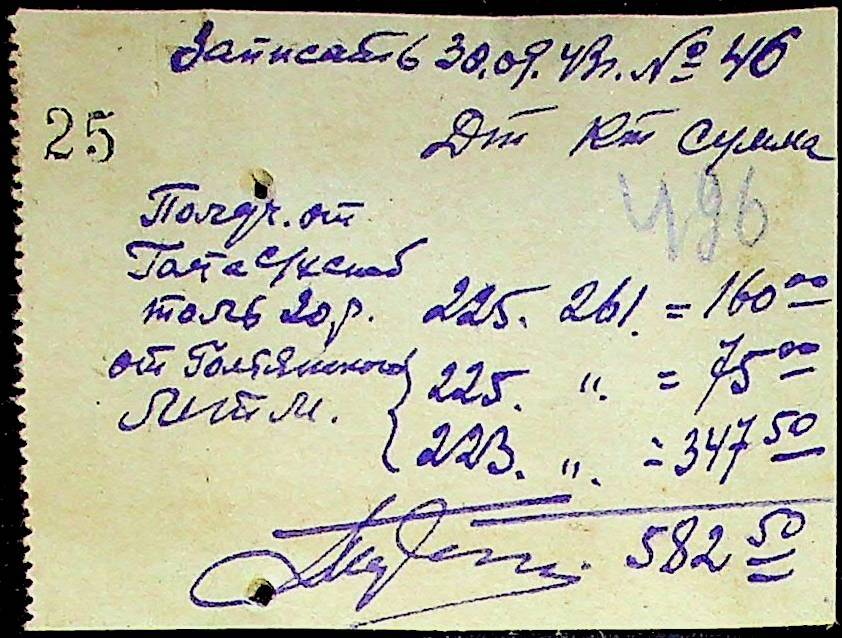 Записать 30.09.43г. № 46
25
Дт Кт Сумма
496
Получ. от
толь 20р. 225. 261. = 160 00
от { 225. ". = 75 00
{ 223. ". = 347 50
582 50